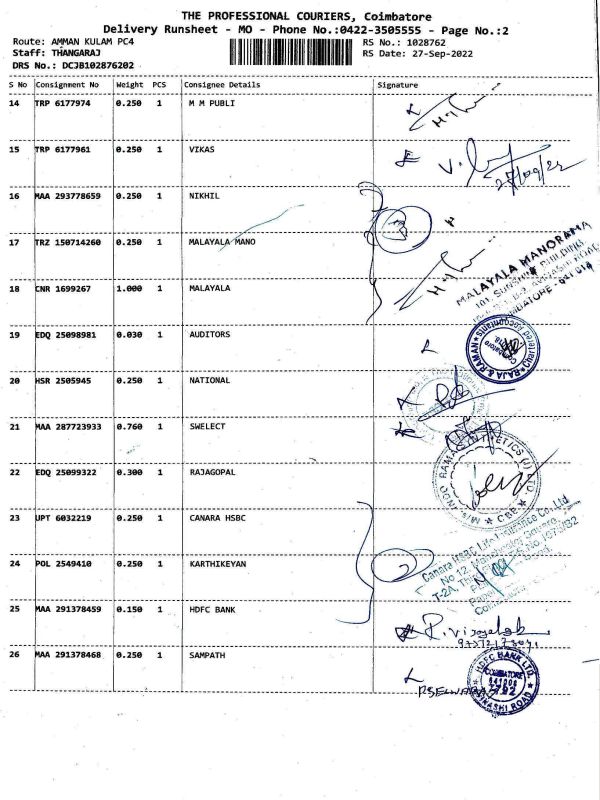 THE PROFESSIONAL COURIERS, Coimbatore
Delivery Runsheet - MO - Phone No.:0422-3505555 - Page No.:2
Route: AMMAN KULAM PC4 RS No.: 1028762
Staff: THANGARAJ RS Date: 27-Sep-2022
DRS No.: DCJB102876202
S No Consignment No Weight PCS Consignee Details Signature
14 TRP 6177974 0.250 1 M M PUBLI
15 TRP 6177961 0.250 1 VIKAS
27/09/22
16 MAA 293778659 0.250 1 NIKHIL
17 TRZ 150714260 0.250 1 MALAYALA MANO
MALAYALA MANORAMA
18 CNR 1699267 1.000 1 MALAYALA
19 EDQ 25098981 0.030 1 AUDITORS
RAJA & RAMAN Chartered Accountants
Coimbatore
20 HSR 2505945 0.250 1 NATIONAL
21 MAA 287723933 0.760 1 SWELECT
22 EDQ 25099322 0.300 1 RAJAGOPAL
CBE
23 UPT 6032219 0.250 1 CANARA HSBC
Canara HSBC Life Insurance Co., Ltd
24 POL 2549410 0.250 1 KARTHIKEYAN
25 MAA 291378459 0.150 1 HDFC BANK
26 MAA 291378468 0.250 1 SAMPATH
HDFC BANK LTD.
COIMBATORE
7792